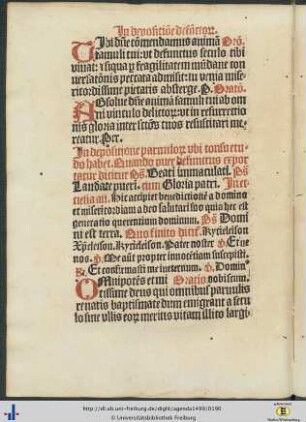 In depositiõe defũctor̃.
TIbi dñe cõmendamus animã Orõ.
famuli tui: vt defunctus seculo tibi
viuat: ⁊ siqua p̱ fragilitatem mũdane con
uersatõnis peccata admisit: tu venia mise
ricordissime pietatis absterge. P. Oratiõ
ABsolue dñe animã famuli tui ab om
ni vinculo delictor̃: vt in resurrectio
nis gloria inter sctõs tuos resuscitari me
reatur. Per.
In depositione paruulor̃ vbi consuetu
do habet. Quando puer defunctus expor
tatur dicitur Ps. Beati immaculati. Ps.
Laudate pueri. cum Gloria patri. In ec
clesia añ. Hic accipiet benedictionẽ a domino
et misericordiam a deo salutari suo quia hec est
generatio querentium dominum. Ps. Domi
ni est terra. Quo finito dicit̃. Kyrieleison
Xp̃eleison. Kyrieleison. Pater noster Et ne
nos. Me aũt propter innocẽtiam suscepisti.
R. Et confirmasti me in eternum. Domin⁹
Oratio
OMnipotẽs et mi nobiscum.
tissime deus qui omnibus paruulis
renatis baptismate dum emigrant a secu
lo sine vllis eor̃ meritis vitam illico largi-
http://dl.ub.uni-freiburg.de/diglit/agenda1499/0190
© Universitätsbibliothek Freiburg